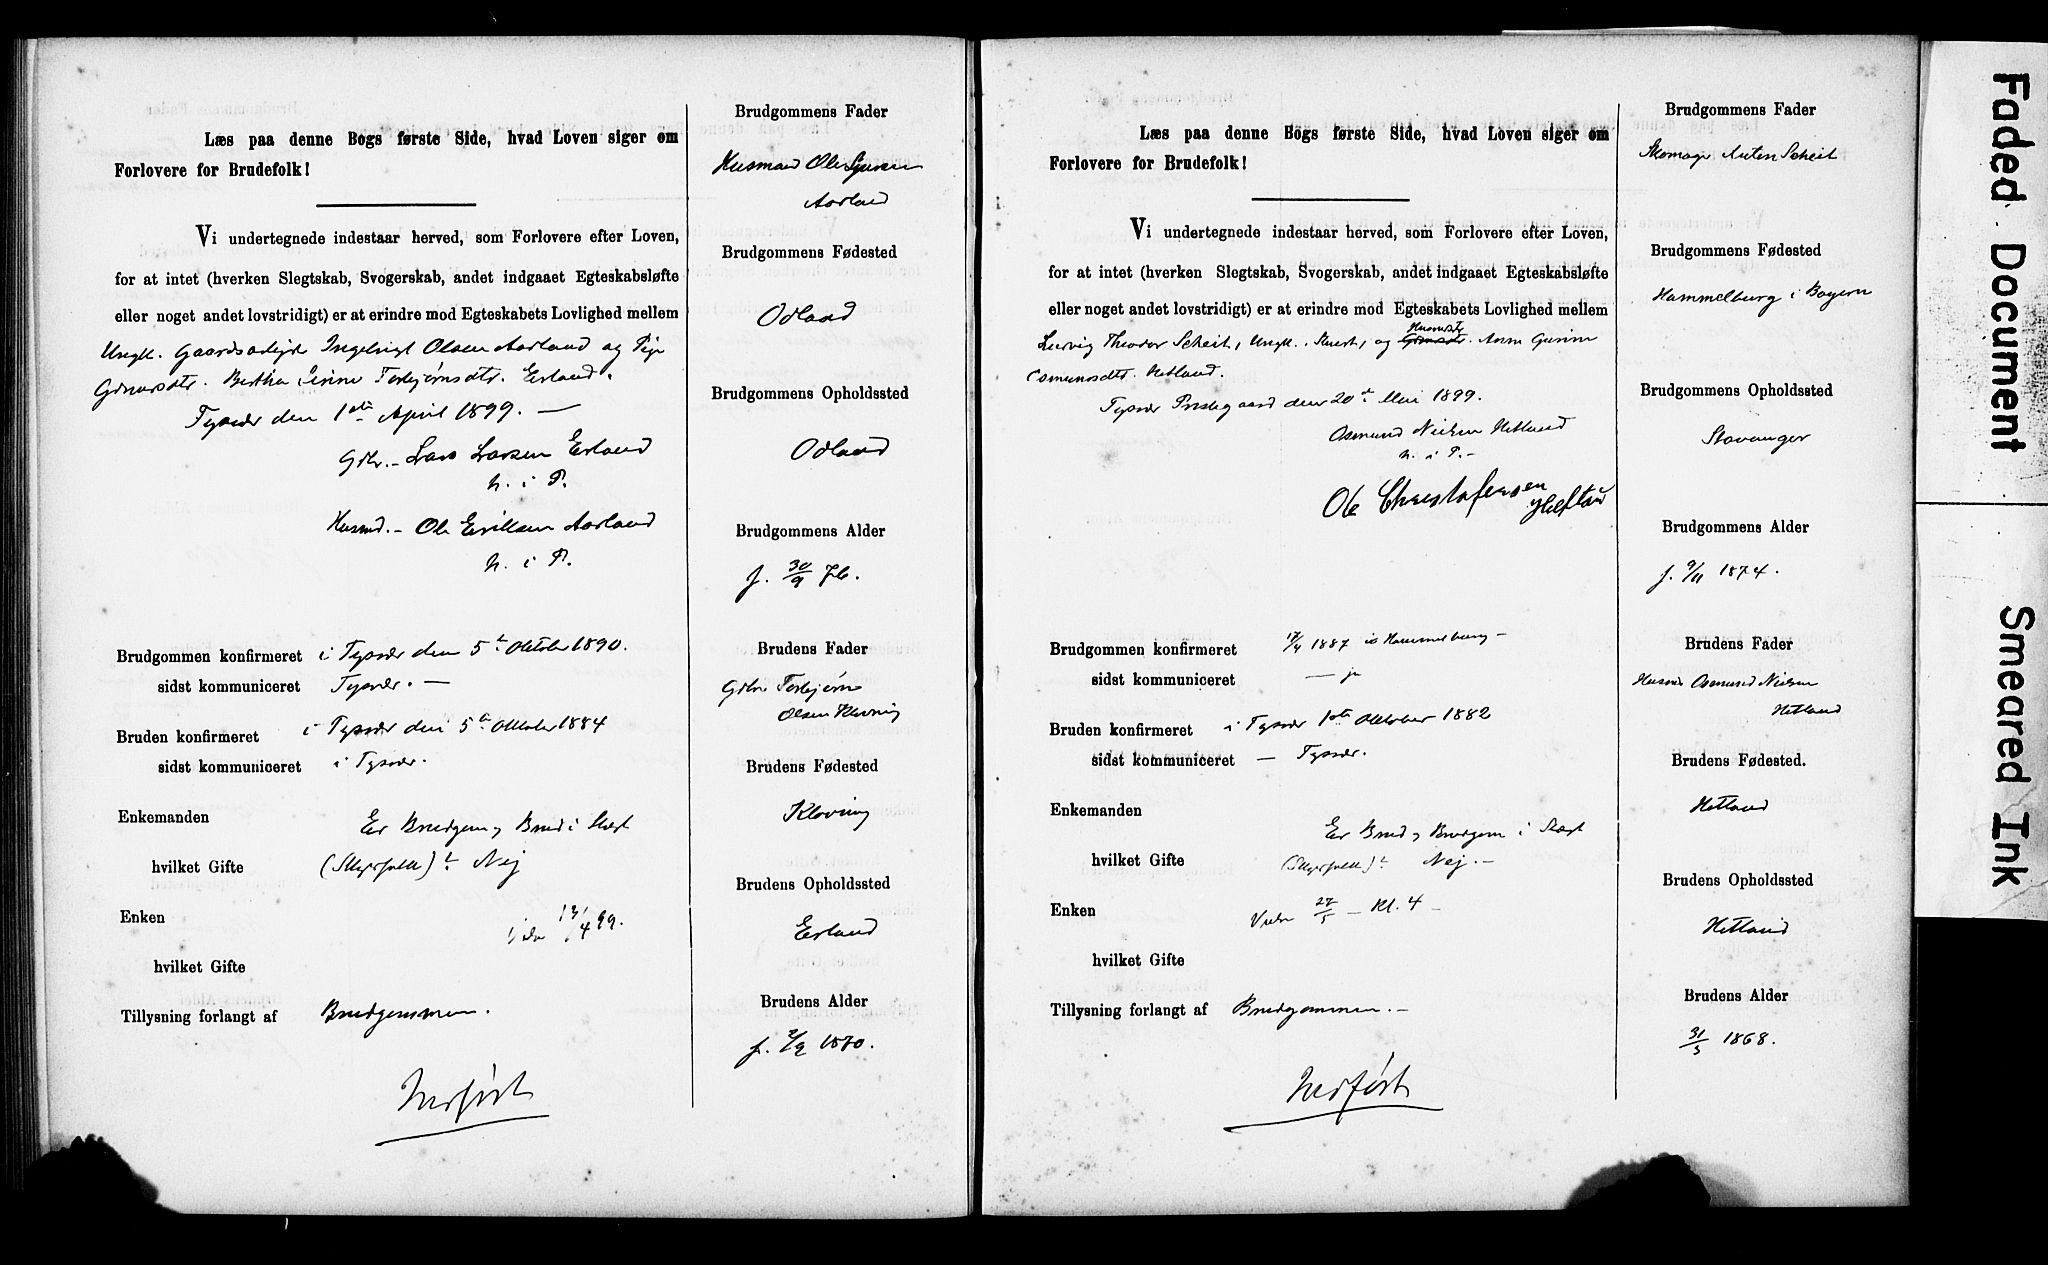 Læs paa denne Bogs første Side, hvad Loven siger om
Forlovere for Brudefolk!
Vi undertegnede indestaar herved, som Forlovere efter Loven,
for at intet (hverken Slegtskab, Svogerskab, andet indgaaet Egteskabsløfte
eller noget andet lovstridigt) er at erindre mod Egteskabets Lovlighed mellem
Ungk. Gaardsarbejd Ingebrigt Olsen Aarland og Pige
Grdmrsdtr. Bertha Serine Torbjørnsdtr. Erland.
Tysvær den 1ste April 1899. —
Gdbr. – Lars Larsen Erland
m. i P.
Husmd. – Ole Eriksen Aarland
m. i P.
Brudgommen konfirmeret i Tysvær den 5te Oktober 1890.
sidst kommuniceret Tysvær. —
Bruden konfirmeret i Tysvær den 5te Oktober 1884
sidst kommuniceret i Tysvær.
Enkemanden Er Brudgom og Brud i Slægt
hvilket Gifte (Skyldfolk)? Nej
Enken Viede 13/4 99.
hvilket Gifte
Tillysning forlangt af Brudgommen.
Indført
Brudgommens Fader
Husmand Ole
Aarland
Brudgommens Fødested
Odland
Brudgommens Opholdssted
Odland
Brudgommens Alder
f. 30/9 76.
Brudens Fader
Gdbr Torbjørn
Olsen Kloving
Brudens Fødested
Kloving
Brudens Opholdssted
Erland
Brudens Alder
f. 2/9 1870.
Læs paa denne Bogs første Side, hvad Loven siger om
Forlovere for Brudefolk!
Vi undertegnede indestaar herved, som Forlovere efter Loven,
for at intet (hverken Slegtskab, Svogerskab, andet indgaaet Egteskabsløfte
eller noget andet lovstridigt) er at erindre mod Egteskabets Lovlighed mellem
Ludvig Theodor Scheit, Ungk., og Husmdtr. Anna Gurine
Osmundsdtr. Hetland.
Tysvær Prestegaard den 20de Mai 1899.
Osmund Nielsen Hetland
m. i P. –
Ole Christofersen Hetland
Brudgommen konfirmeret 17/4 1887 i Hammelburg –
sidst kommuniceret — ja
Bruden konfirmeret i Tysvær 1ste Oktober 1882
sidst kommuniceret — Tysvær.
Enkemanden Er Brud og Brudgom i Slægt
hvilket Gifte (Skyldfolk)? Nej. –
Enken Viede 27/5 – Kl. 4 –
hvilket Gifte
Tillysning forlangt af Brudgommen. –
Indført
Brudgommens Fader
Skomager Anton Scheit
Brudgommens Fødested
Hammelburg i Bayern
Brudgommens Opholdssted
Stavanger
Brudgommens Alder
f. 9/11 1874.
Brudens Fader
Husmd Osmund Nielsen
Hetland
Brudens Fødested.
Hetland
Brudens Opholdssted
Hetland
Brudens Alder
31/3 1868.
Faded Document
Smeared Ink